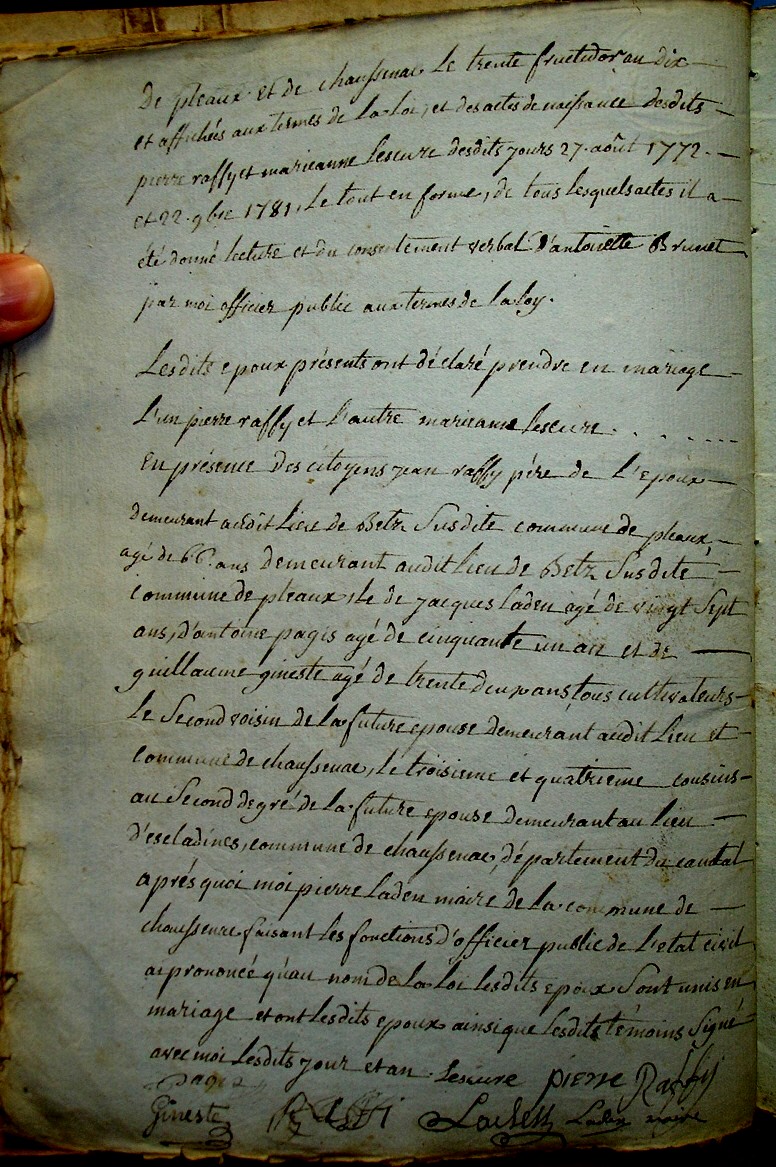 De pleaux et de chaussenac le trente fructidor an dix
et affichés aux termes de la loi, et des actes de naissance desdits
pierre raffy et marieanne lescure desdits jours 27. août 1772.
et 22. 9bre 1781, le tout en forme, de tous lesquels actes il a
été donné lecture et du consentement verbal d'antoinette Brunet
par moi officier public aux termes de la loy.
Lesdits epoux présents ont déclaré prendre en mariage
L'un pierre raffy et L'autre marieanne lescure . . . . . .
En présence des citoyens jean raffy pére de L'epoux
demeurant audit Lieu de Betz Susdite commune de pleaux,
agé de 66. ans demeurant audit Lieu de Betz Susdite
commune de pleaux, de jacques Laden agé de vingt Sept
ans, d'antoine pagis agé de cinquante un an et de
guillaume gineste agé de trente deux ans tous cultivateurs
le Second voisin de la future epouse demeurant audit Lieu et
commune de chaussenac, le troisieme et quatrieme cousins
au Second degré de la future epouse demeurant au lieu
d'escladines, commune de chaussenac, département du cantal
aprés quoi moi pierre Laden maire de la commune de
chaussenac faisant les fonctions d'officier public de L'etat civil
ai prononcé qu'au nom de la loi lesdits epoux Sont unis en
mariage et ont lesdits epoux ainsi que lesdits témoins Signé
avec moi lesdits jour et an. Lescure pierre Raffy
pagis
Gineste Raffi Laden Laden maire